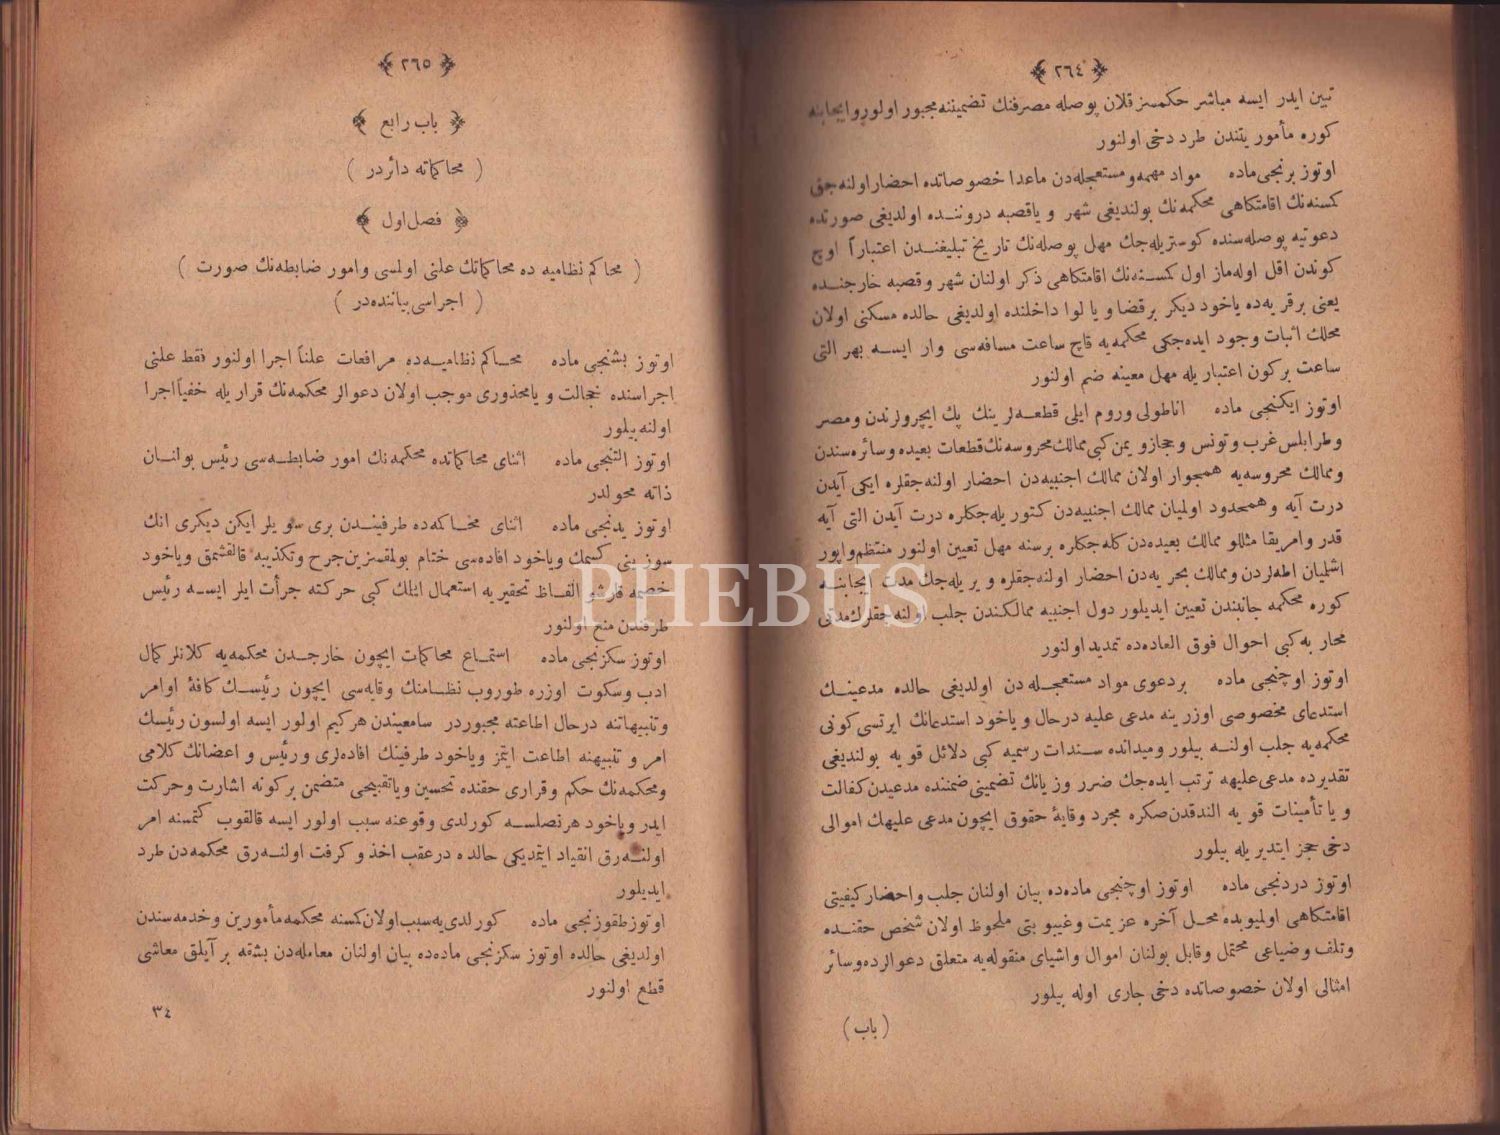 ﴿ ٢٦٤ ﴾
تبين ايدر ايسه مباشر حكمسز قلان پوصله مصرفنك تضميننه مجبور اولور وايجابنه
كوره مأموريتندن طرد دخى اولنور
اوتوز برنجى ماده مواد مهمه و مستعجله‌دن ماعدا خصوصاتده احضار اولنه‌جق
كسنه‌نك اقامتكاهى محكمه‌نك بولنديغى شهر و ياقصبه دروننده اولديغى صورتده
دعوتيه پوصله‌سنده كوستريله‌جك مهل پوصله‌نك تاريخ تبليغندن اعتباراً اوچ
كوندن اقل اوله‌ماز اول كمسنه‌نك اقامتكاهى ذكر اولنان شهر وقصبه خارجنده
يعنى برقريه‌ده ياخود ديكر برقضا و يا لوا داخلنده اولديغى حالده مسكنى اولان
محلك اثبات وجود ايده‌جكى محكمه‌يه قاچ ساعت مسافه‌سى وار ايسه بهر التى
ساعت بركون اعتباريله مهل معينه ضم اولنور
اوتوز ايكنجى ماده اناطولى وروم ايلى قطعه‌لرينك پك ايچرولرندن ومصر
وطرابلس غرب وتونس وحجازو يمن كبى ممالك محروسه‌نك قطعات بعيده وسائره‌سندن
وممالك محروسه‌يه همجوار اولان ممالك اجنبيه‌دن احضار اولنه‌جقلره ايكى آيدن
درت آيه وهمحدود اولميان ممالك اجنبيه‌دن كتوريله‌جكلره درت آيدن التى آيه
قدر وامريقا مثللو ممالك بعيده‌دن كله‌جكلره برسنه مهل تعيين اولنور منتظم واپور
اشلميان اطه‌لردن وممالك بحريه‌دن احضار اولنه‌جقلره ويريله‌جك مدت ايجابنه
كوره محكمه جانبندن تعيين ايديلور دول اجنبيه ممالكندن جلب اولنه‌جقلرك مدتى
محاربه كبى احوال فوق العاده‌ده تمديد اولنور
اوتوز اوچنجى ماده بردعوى مواد مستعجله‌دن اولديغى حالده مدعينك
استدعاى مخصوصى اوزرينه مدعى عليه درحال و ياخود استدعانك ايرتسى كونى
محكمه‌يه جلب اولنه بيلور وميدانده سندات رسميه كبى دلائل قويه بولنديغى
تقديرده مدعى‌عليهه ترتب ايده‌جك ضرر وزيانك تضمينى ضمننده مدعيدن كفالت
و يا تأمينات قويه الندقدن صكره مجرد وقايهٔ حقوق ايچون مدعى عليهك اموالى
دخى حجز ايتديريله بيلور
اوتوز دردنجى ماده اوتوز اوچنجى ماده‌ده بيان اولنان جلب واحضار كيفيتى
اقامتكاهى اولميوبده محل آخره عزيمت وغيبوبتى ملحوظ اولان شخص حقنده
وتلف وضياعى محتمل وقابل بولنان اموال واشياى منقوله‌يه متعلق دعوالرده وسائر
امثالى اولان خصوصاتده دخى جارى اوله بيلور
( باب )
﴿ ٢٦٥ ﴾
﴿ باب رابع ﴾
( محاكماته دائردر )
﴿ فصل اول ﴾
( محاكم نظاميه ده محاكماتك علنى اولمسى وامور ضابطه‌نك صورت )
( اجراسى بياننده‌در )
اوتوز بشنجى ماده محاكم نظاميه‌ده مرافعات علناً اجرا اولنور فقط علنى
اجراسنده خجالت و يامحذورى موجب اولان دعوالر محكمه‌نك قراريله خفياً اجرا
اولنه بيلور
اوتوز التنجى ماده اثناى محاكماتده محكمه‌نك امور ضابطه‌سى رئيس بولنان
ذاته محولدر
اوتوز يدنجى ماده اثناى محاكمه‌ده طرفيندن برى سويلر ايكن ديكرى انك
سوزينى كسمك وياخود افاده‌سى ختام بولمقسزين جرح وتكذيبه قالقشمق وياخود
خصمه قارشو الفاظ تحقيريه استعمال ايتمك كبى حركته جرأت ايلر ايسه رئيس
طرفندن منع اولنور
اوتوز سكزنجى ماده استماع محاكمات ايچون خارجدن محكمه‌يه كلانلر كمال
ادب وسكوت اوزره طوروب نظامنك وقايه‌سى ايچون رئيسك كافهٔ اوامر
وتنبيهاتنه درحال اطاعته مجبوردر سامعيندن هركيم اولور ايسه اولسون رئيسك
امر و تنبيهنه اطاعت ايتمز وياخود طرفينك افاده‌لرى و رئيس و اعضانك كلامى
ومحكمه‌نك حكم وقرارى حقنده تحسين وياتقبيحى متضمن بركونه اشارت وحركت
ايدر وياخود هرنصلسه كورلدى وقوعنه سبب اولور ايسه قالقوب كتمسنه امر
اولنه‌رق انقياد ايتمديكى حالده درعقب اخذ و كرفت اولنه‌رق محكمه‌دن طرد
ايديلور
اوتوز طقوزنجى ماده كورلدى‌يه سبب اولان كمسنه محكمه مأمورين وخدمه‌سندن
اولديغى حالده اوتوز سكزنجى ماده‌ده بيان اولنان معامله‌دن بشقه برآيلق معاشى
قطع اولنور
٣٤
PHEBUS